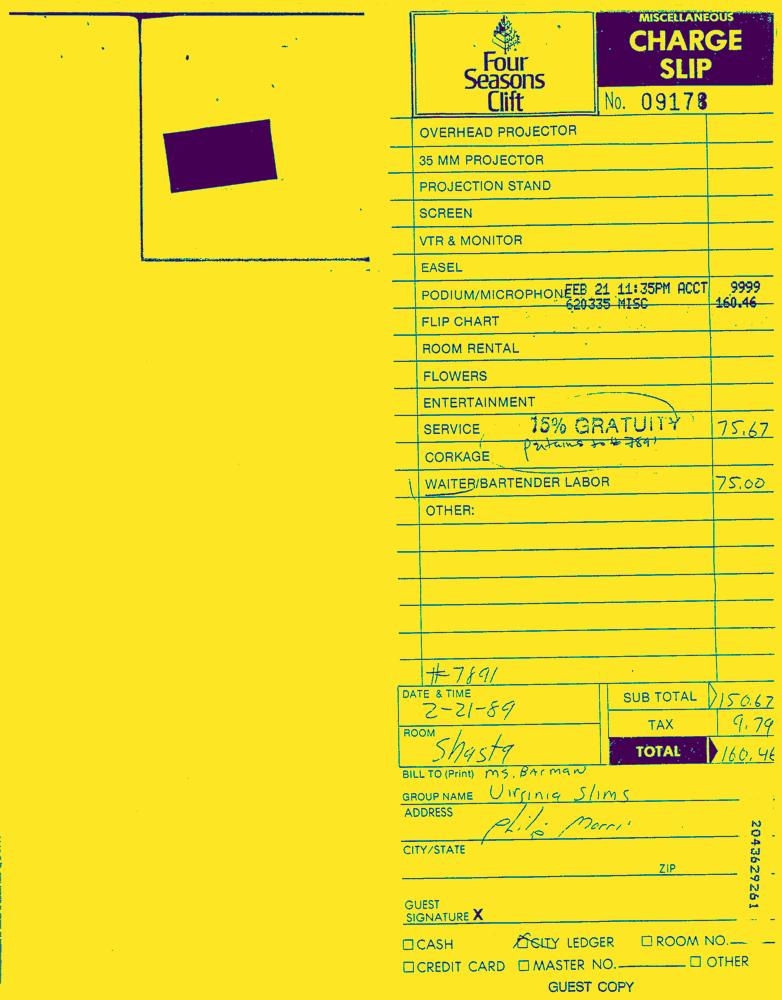 Four
Seasons
Clift
MISCELLANEOUS
CHARGE
SLIP
No. 09178
OVERHEAD PROJECTOR
35 MM PROJECTOR
PROJECTION STAND
SCREEN
VTR & MONITOR
EASEL
PODIUM/MICROPHONE FEB 21 11:35PM ACCT 9999
620335 MISC 160.46
FLIP CHART
ROOM RENTAL
FLOWERS
ENTERTAINMENT
SERVICE 15% GRATUITY 75.67
pertains to # 7891
CORKAGE
WAITER/BARTENDER LABOR 75.00
OTHER:
#7891
DATE & TIME
2-21-89
SUB TOTAL 150.67
TAX 9.79
ROOM
Shasta
TOTAL 160.46
BILL TO (Print) MS. BACMAN
GROUP NAME Virginia Slims
ADDRESS
Philip Morris
CITY/STATE
ZIP
2043629261
GUEST
SIGNATURE X
CASH CITY LEDGER ROOM NO.
CREDIT CARD MASTER NO. OTHER
GUEST COPY